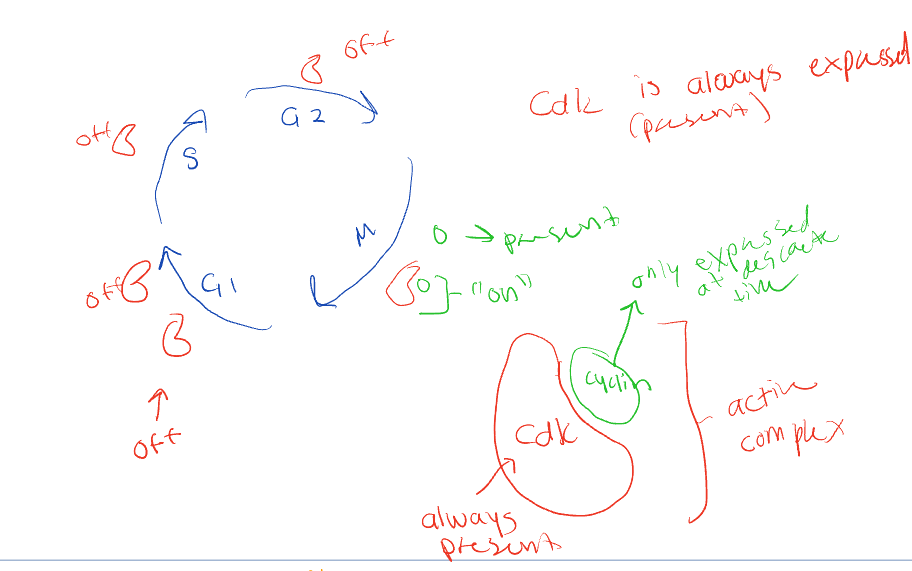 off
G2
Cdk is always expassed
(present)
off
S
M
O → present
off
G1
O ] - "on"
only expassed
at descrete
time
cyclin
Cdk
active
complex
off
always
present